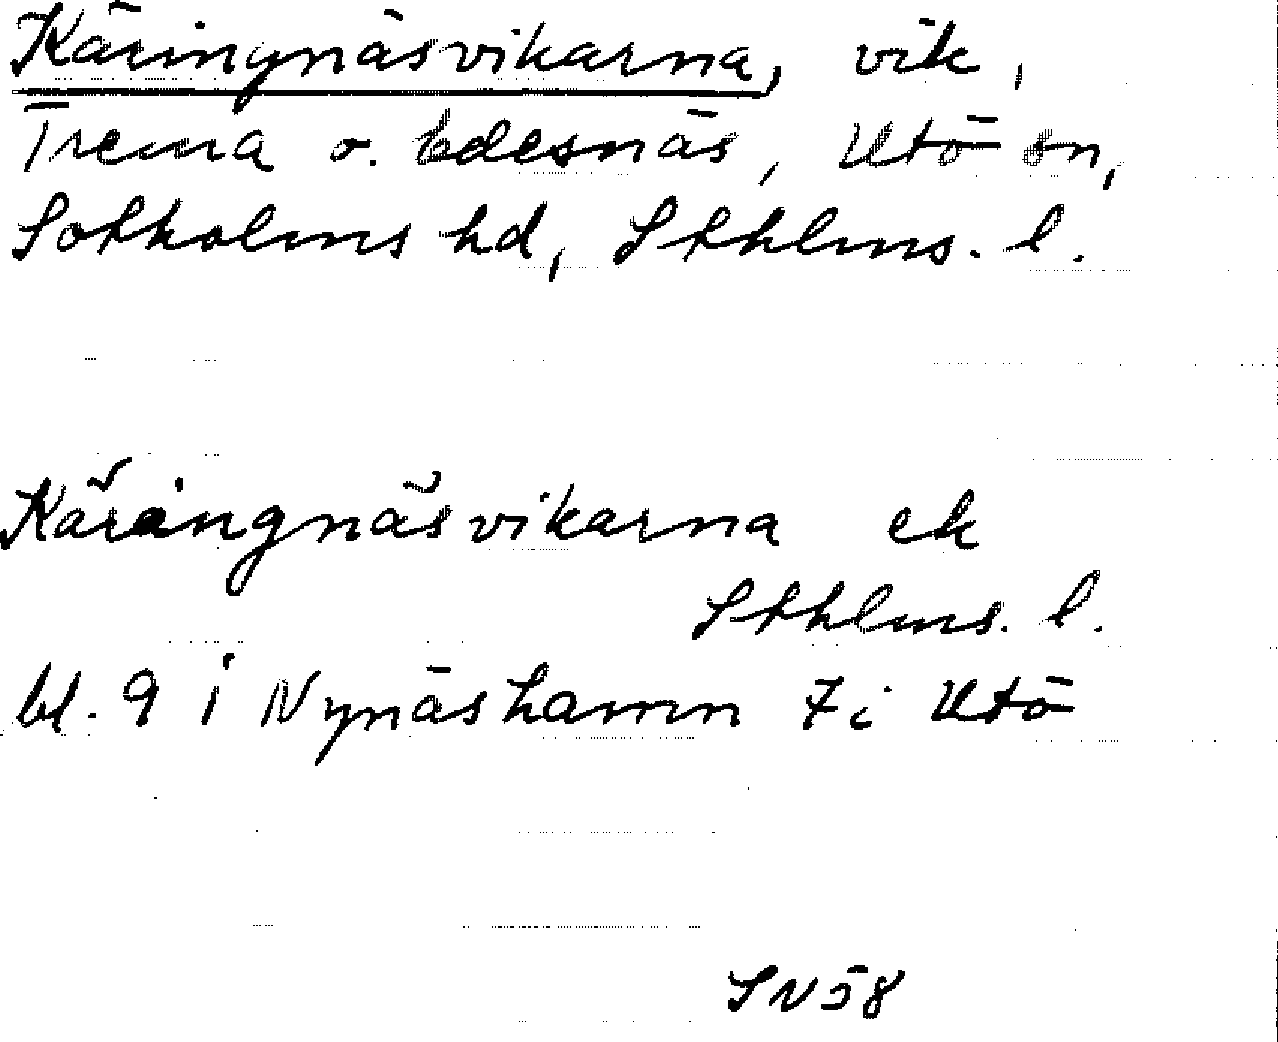 Käringnäsvikarna, vik,
Trema o. Edesnäs, Utö sn,
Sotholms hd, Sthlms. l.
Käringnäsvikarna ek
Sthlms. l.
bl. 9 i Nynäshamn 7 i Utö
SN58